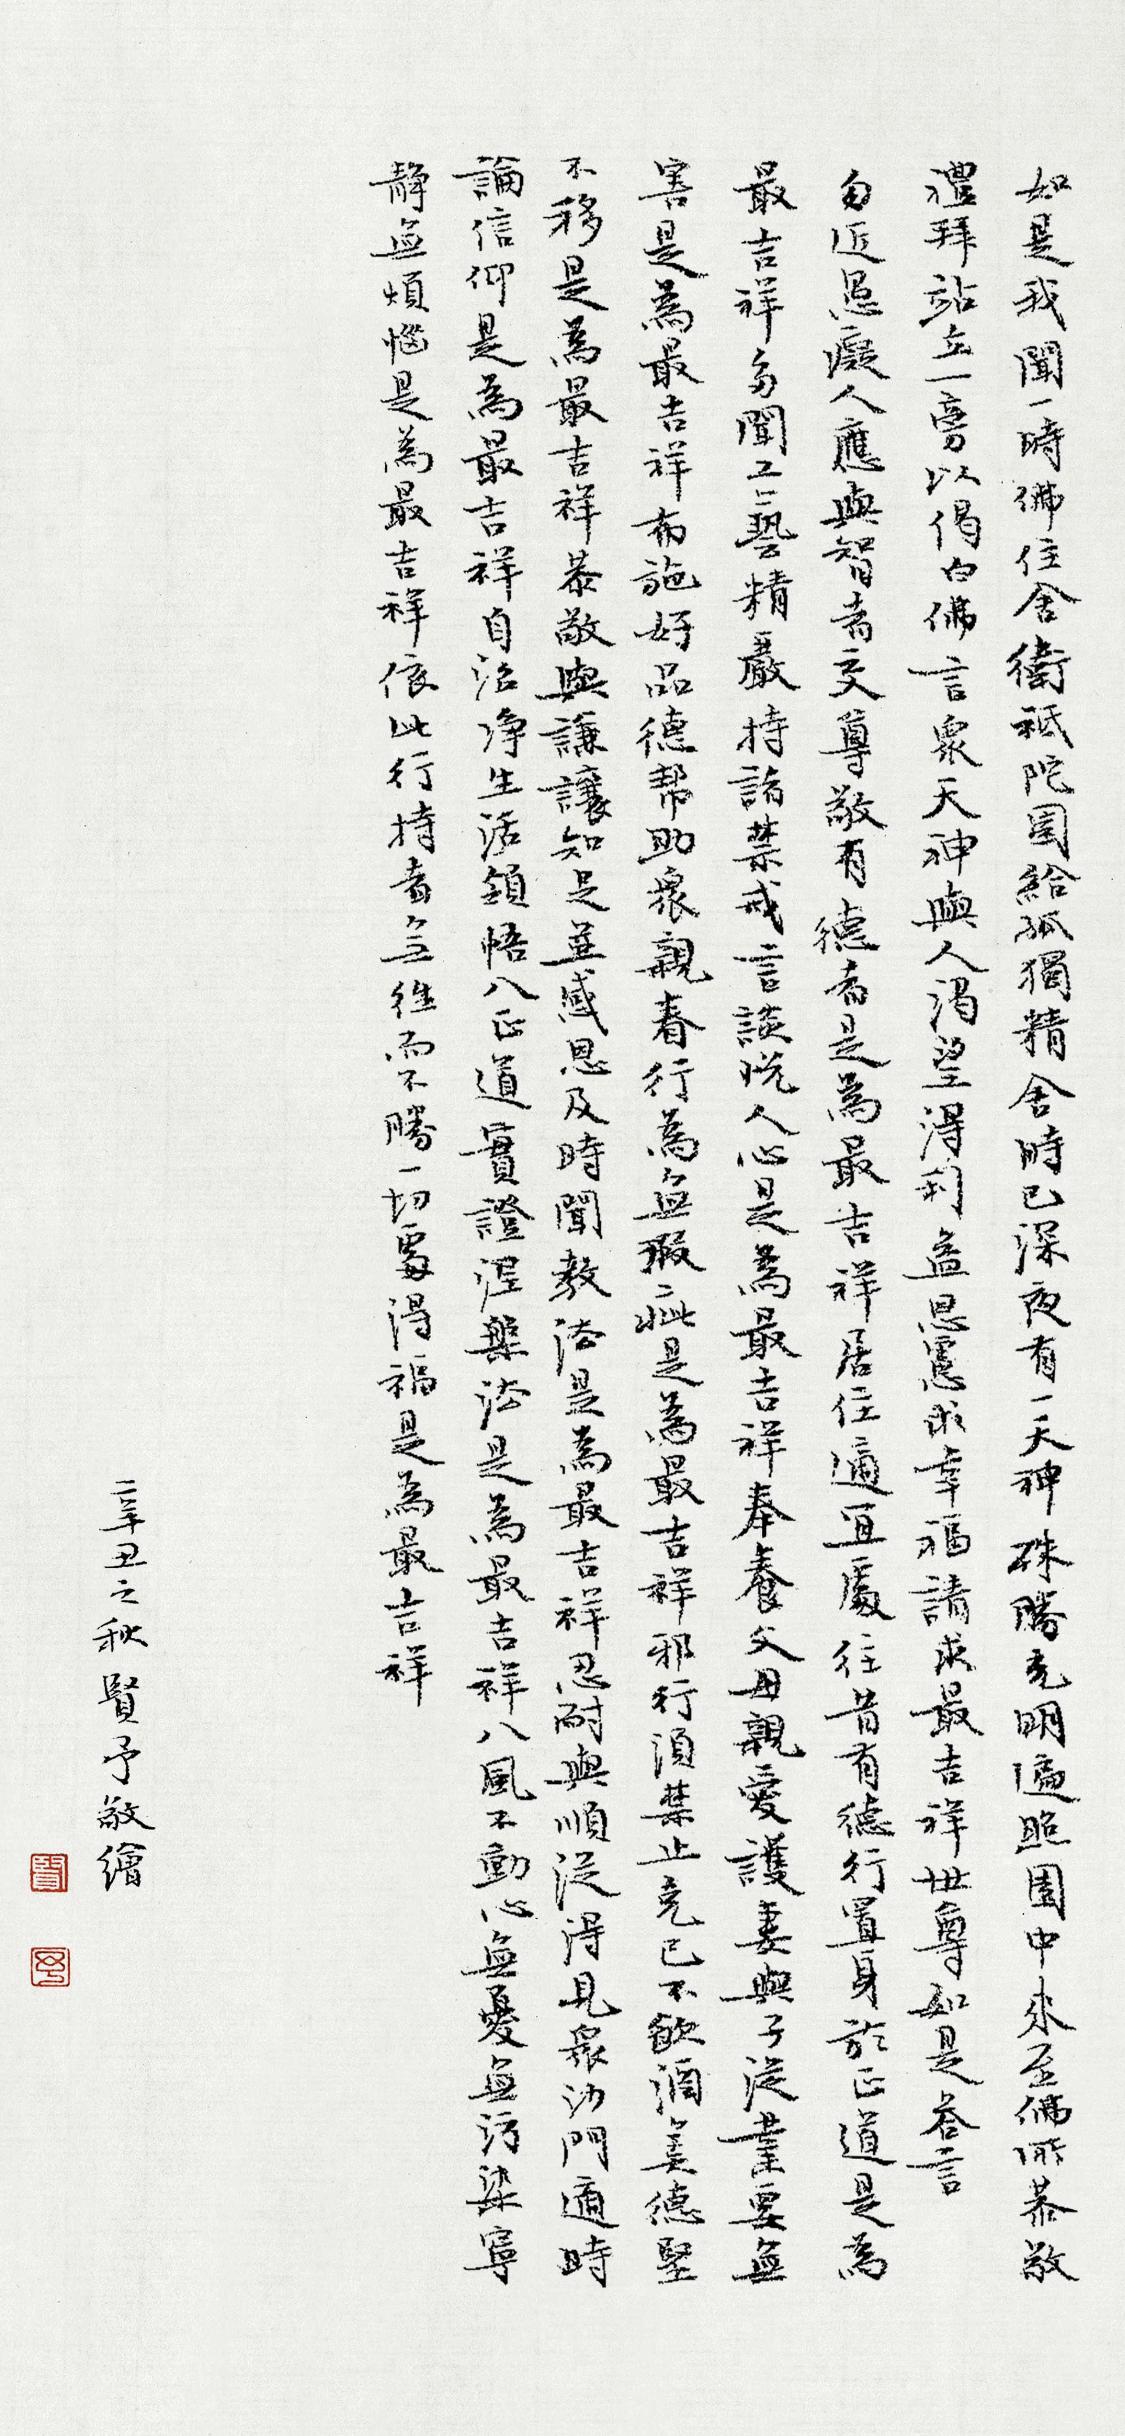 如是我聞一時佛住舍衛祇陀園給孤獨精舍時已深夜有一天神殊勝光明遍照園中來至佛所恭敬
禮拜站立一旁以偈白佛言眾天神與人渴望得利益思慮求幸福請求最吉祥世尊如是答言
勿近愚癡人應與智者交尊敬有德者是為最吉祥居住適宜處往昔有德行置身於正道是為
最吉祥多聞工藝精嚴持諸禁戒言談悅人心是為最吉祥奉養父母親愛護妻與子從業要無
害是為最吉祥布施好品德幫助眾親眷行為無瑕疵是為最吉祥邪行須禁止克己不飲酒美德堅
不移是為最吉祥恭敬與謙讓知足並感恩及時聞教法是為最吉祥忍耐與順從得見眾沙門適時
論信仰是為最吉祥自治淨生活領悟八正道實證涅槃法是為最吉祥八風不動心無憂無污染寧
靜無煩惱是為最吉祥依此行持者無往而不勝一切處得福是為最吉祥
辛丑之秋賢予敬繪